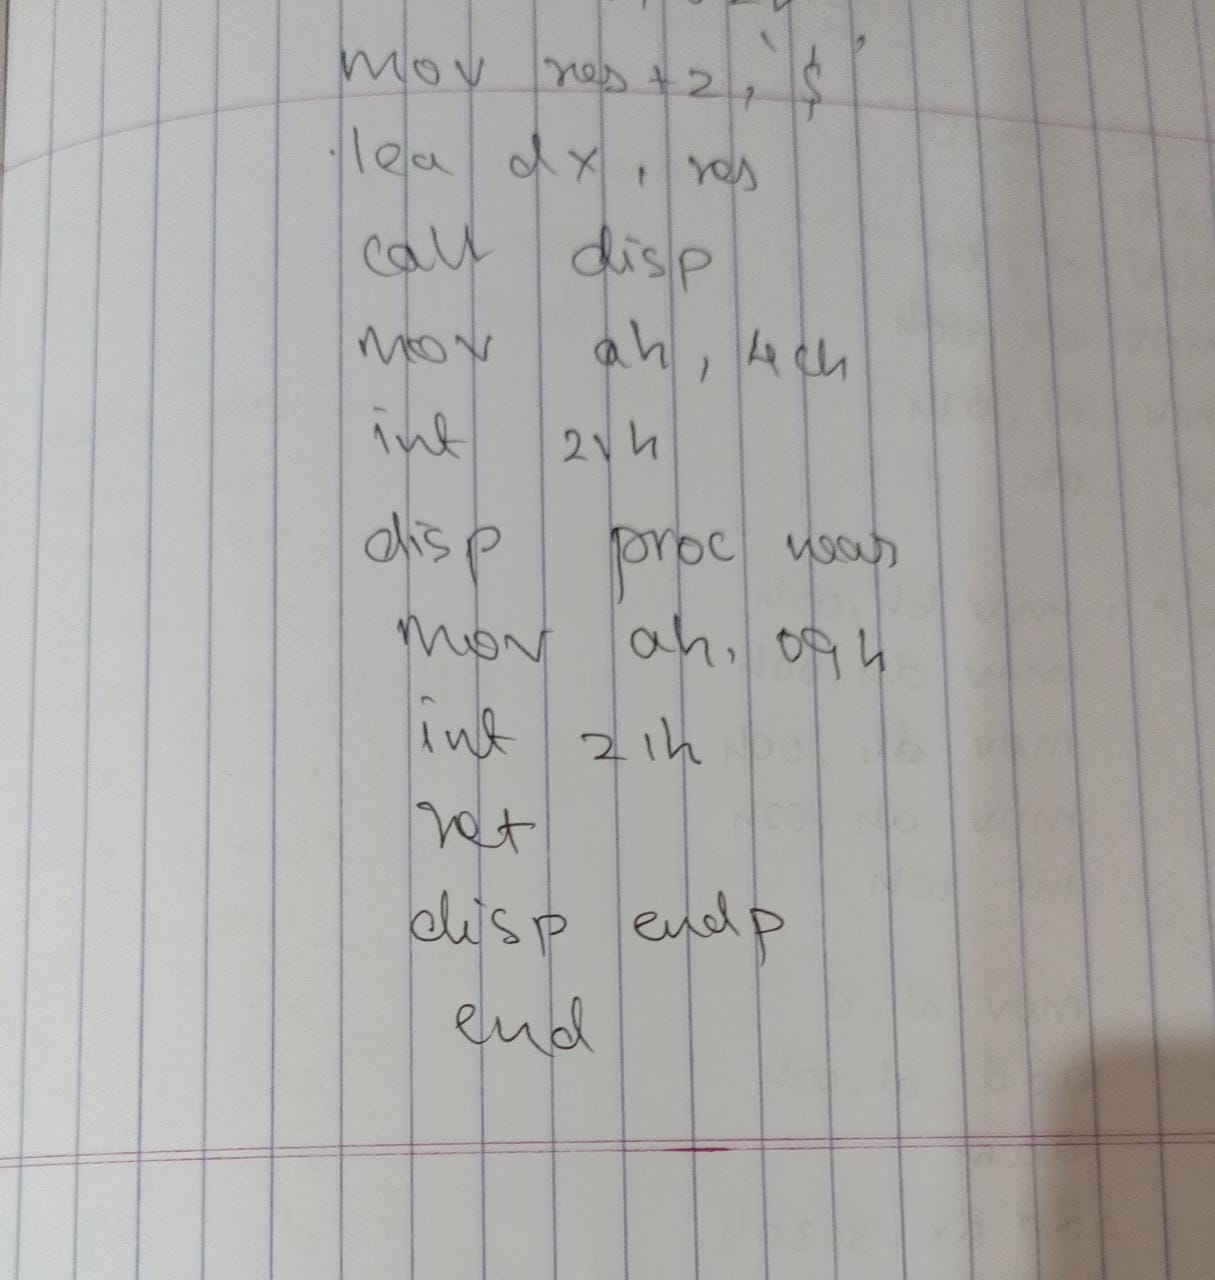 mov res+2, '$'
lea dx, res
call disp
mov ah, 4ch
int 21h
disp proc near
mov ah, 09h
int 21h
ret
disp endp
end